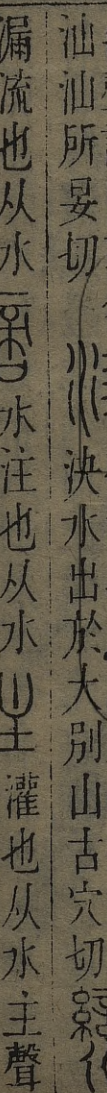 汕汕所晏切 決水出於大別山古穴切
漏流也从水 水注也从水 灌也从水主聲